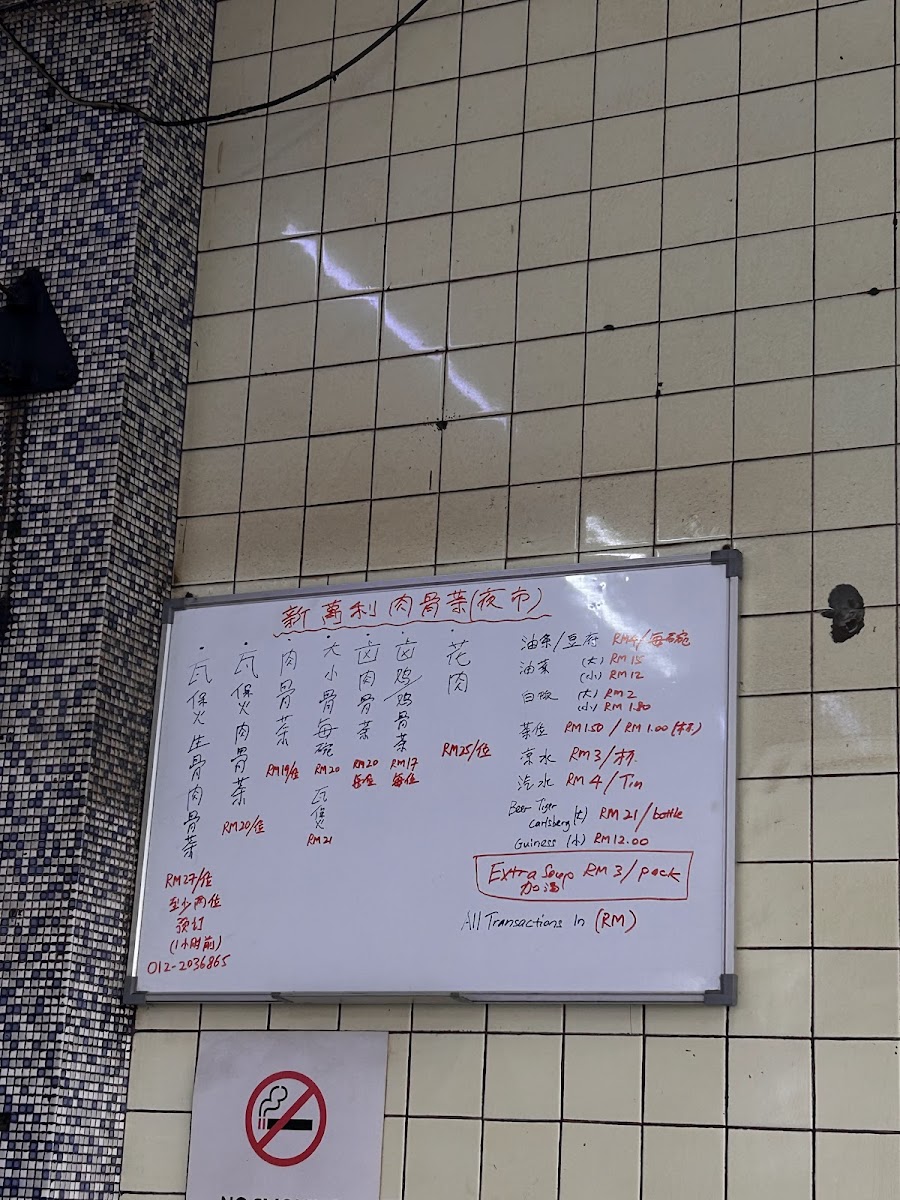 新萬利肉骨茶(夜市)
·瓦煲生骨肉骨茶
RM27/位
至少两位
预订
(1小时前)
012-2036865
·瓦煲肉骨茶
RM20/位
肉骨茶
RM19/位
·大小骨每碗
RM20
瓦煲
RM21
·卤肉骨茶
RM20
每位
·卤鸡鸡骨茶
RM17
每位
·花肉
RM25/位
油条/豆腐 RM4/每碗
油菜 (大) RM15
(小) RM12
白饭 (大) RM2
(小) RM1.80
茶位 RM1.50 / RM1.00 (杯)
凉水 RM3/杯
汽水 RM4/Tin
Beer Tiger
Carlsberg (大) RM21/bottle
Guiness (小) RM12.00
Extra Soup RM3/pack
加汤
All Transactions In (RM)